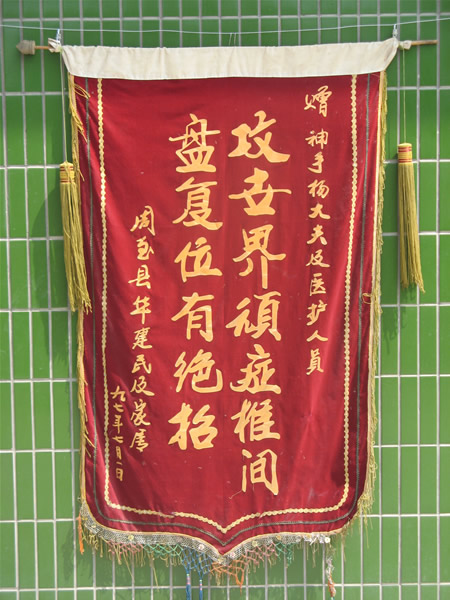 赠 神手杨大夫及医护人员
攻世界顽症椎间
盘复位有绝招
周至县华建民及家属
九七年七月一日